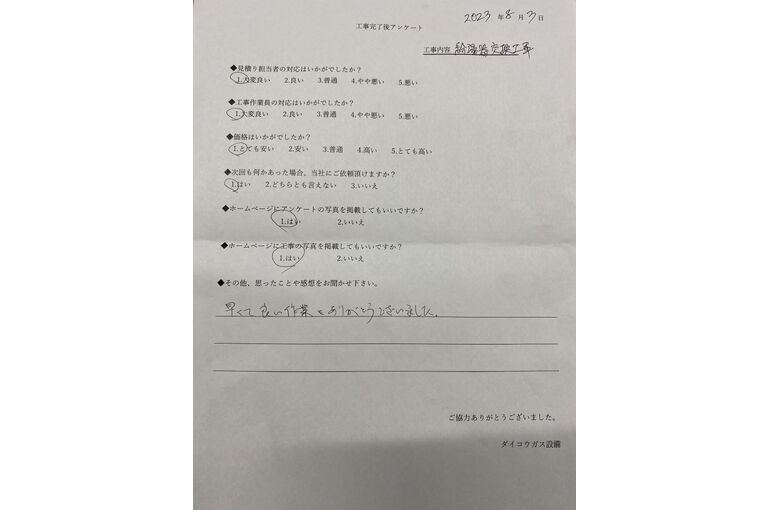 2023年8月3日
工事完了後アンケート
工事内容 給湯器交換工事
◆見積り担当者の対応はいかがでしたか？
1.大変良い 2.良い 3.普通 4.やや悪い 5.悪い
◆工事作業員の対応はいかがでしたか？
1.大変良い 2.良い 3.普通 4.やや悪い 5.悪い
◆価格はいかがでしたか？
1.とても安い 2.安い 3.普通 4.高い 5.とても高い
◆次回も何かあった場合、当社にご依頼頂けますか？
1.はい 2.どちらとも言えない 3.いいえ
◆ホームページにアンケートの写真を掲載してもいいですか？
1.はい 2.いいえ
◆ホームページに工事の写真を掲載してもいいですか？
1.はい 2.いいえ
◆その他、思ったことや感想をお聞かせ下さい。
早くて良い作業をありがとうございました。
ご協力ありがとうございました。
ダイコウガス設備